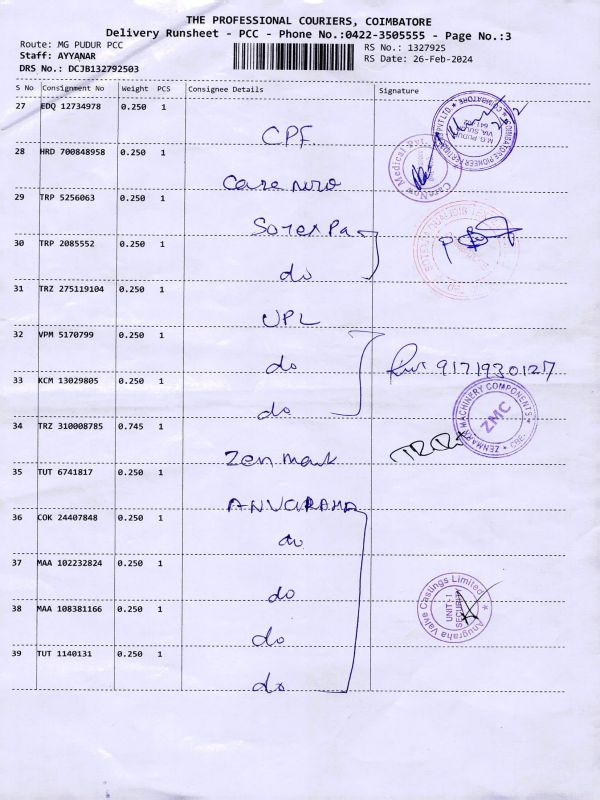 THE PROFESSIONAL COURIERS, COIMBATORE
Delivery Runsheet - PCC - Phone No.:0422-3505555 - Page No.:3
Route: MG PUDUR PCC
RS No.: 1327925
Staff: AYYANAR
RS Date: 26-Feb-2024
DRS No.: DCJB132792503
S No Consignment No Weight PCS Consignee Details Signature
27 EDQ 12734978 0.250 1
CPF
28 HRD 700848958 0.250 1
29 TRP 5256063 0.250 1
30 TRP 2085552 0.250 1
do
31 TRZ 275119104 0.250 1
UPL
32 VPM 5170799 0.250 1
do
33 KCM 13029805 0.250 1
do
ZENMARK MACHINERY COMPONENTS
ZMC
CBE
34 TRZ 310008785 0.745 1
Zenmark
35 TUT 6741817 0.250 1
ANUGRAHA
36 COK 24407848 0.250 1
do
37 MAA 102232824 0.250 1
do
Anugraha Valve Castings Limited
UNIT-1
SECURITY
38 MAA 108381166 0.250 1
do
39 TUT 1140131 0.250 1
do